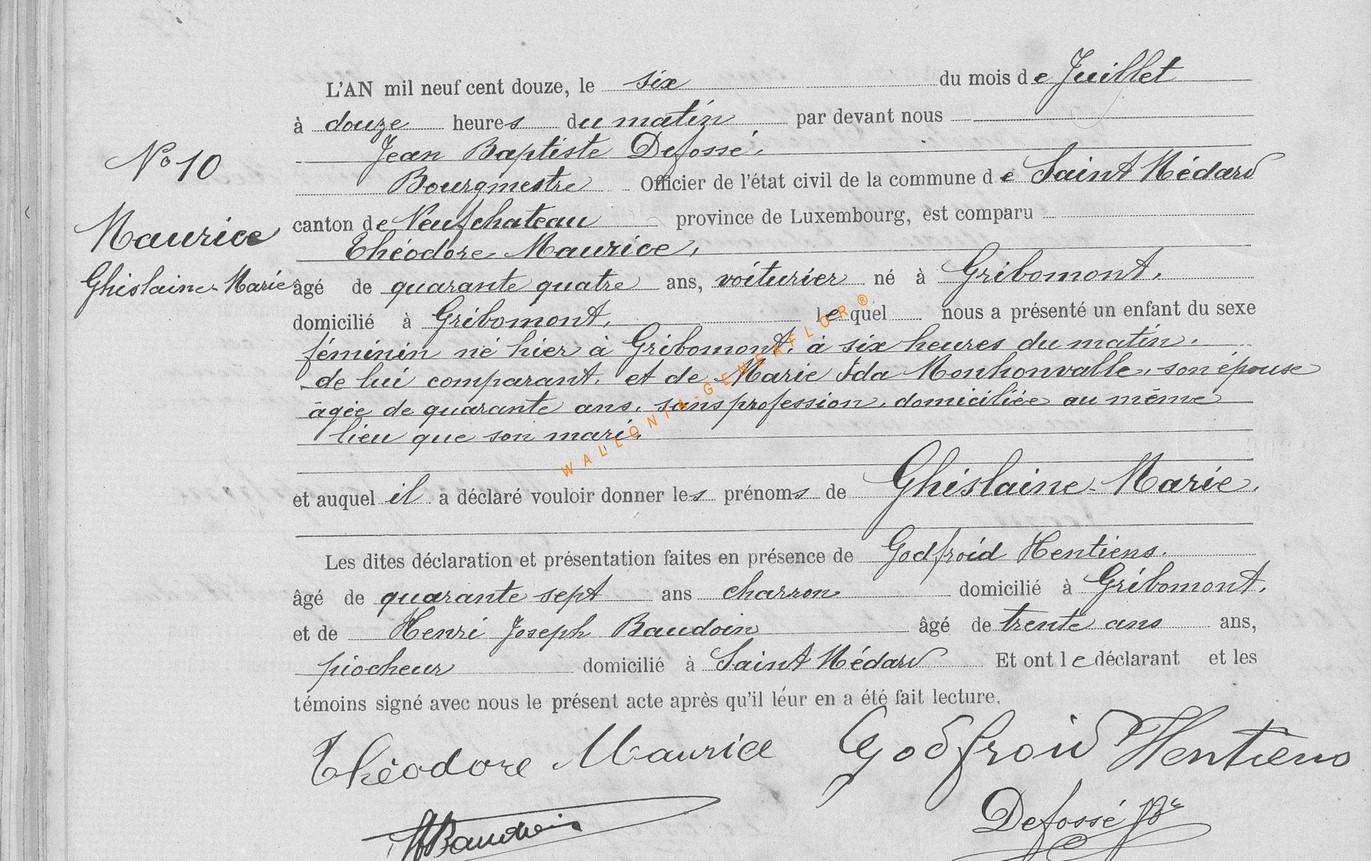 L'AN mil neuf cent douze, le six du mois de Juillet
à douze heures du matin par devant nous
Jean Baptiste Defossé.
No 10
Bourgmestre Officier de l'état civil de la commune de Saint Médard
canton de Neufchateau province de Luxembourg, est comparu
Maurice
Théodore Maurice,
Ghislaine-Marie
âgé de quarante quatre ans, voiturier né à Gribomont.
domicilié à Gribomont. lequel nous a présenté un enfant du sexe
féminin né hier à Gribomont. à six heures du matin.
de lui comparant. et de Marie Ida Monhonvalle, son épouse
âgée de quarante ans, sans profession, domiciliée au même
lieu que son mari.
WALLONIA-GENEAFLOR®
et auquel il a déclaré vouloir donner les prénoms de Ghislaine-Marie.
Les dites déclaration et présentation faites en présence de Godfroid Hentiens.
âgé de quarante sept ans charron domicilié à Gribomont.
et de Henri Joseph Baudoin âgé de trente ans ans,
piocheur domicilié à Saint Médard Et ont le déclarant et les
témoins signé avec nous le présent acte après qu'il leur en a été fait lecture.
Théodore Maurice Godfroid Hentiens
HBaudoin Defossé JBte